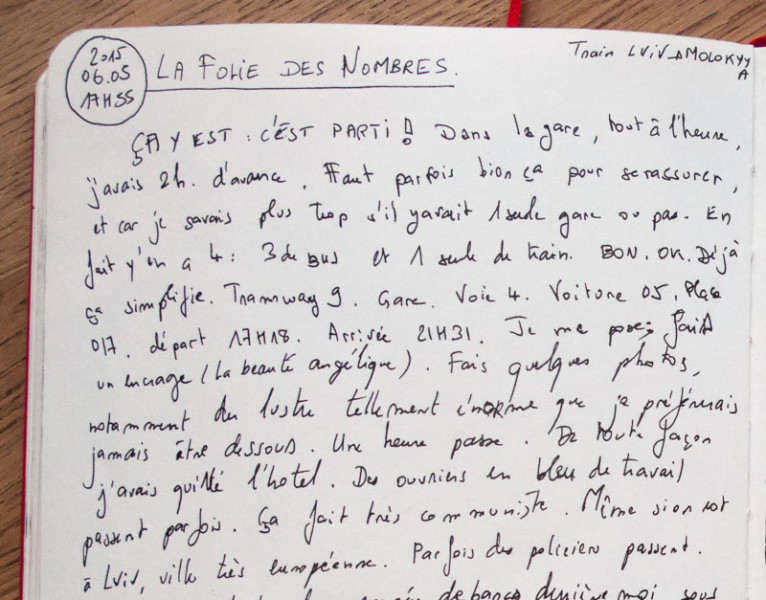 2015
06.05
17H55
LA FOLIE DES NOMBRES.
Train LVIV → MOLOKYY
A
ÇA Y EST : C'EST PARTI ! Dans la gare, tout à l'heure,
j'avais 2h. d'avance. Faut parfois bien ça pour se rassurer,
et car je savais plus trop s'il y avait 1 seule gare ou pas. En
fait y'en a 4 : 3 de BUS et 1 seule de train. BON. OK. Déjà
ça simplifie. Tramway 9. Gare. Voie 4. Voiture 05. Place
017. départ 17H18. Arrivée 21H31. Je me pose, fais
un encrage (La beauté angélique). Fais quelques photos,
notamment du lustre tellement énorme que je préférerais
jamais être dessous. Une heure passe. De toute façon
j'avais quitté l'hotel. Des ouvriers en bleu de travail
passent parfois. Ça fait très communiste. Même si on est
à Lviv, ville très européenne. Parfois des policiers passent.
de bancs derrière moi, sous